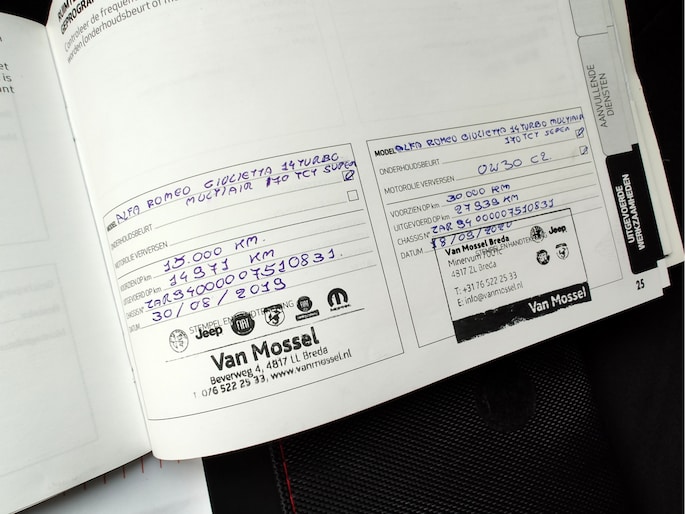 GEPROGRAM
Controleer de frequen
worden (onderhoudsbeurt of m
et
is
ant
MODEL ALFA ROMEO GIULIETTA 14 TURBO
MULTIAIR 170 TCT SUPER
ONDERHOUDSBEURT
MOTOROLIE VERVERSEN
VOORZIEN OP km 15.000 KM.
UITGEVOERD OP km 14971 KM
CHASSIS N° ZAR94000007510831.
DATUM 30/08/2019
STEMPEL EN HANDTEKENING
Jeep FIAT
Van Mossel
Beverweg 4, 4817 LL Breda
T. 076 522 25 33, www.vanmossel.nl
MODEL ALFA ROMEO GIULIETTA 14 TURBO MULTIAIR
170 TCT SUPER
ONDERHOUDSBEURT
MOTOROLIE VERVERSEN 0W30 C2.
VOORZIEN OP km 30000 KM
UITGEVOERD OP km 27939 KM
CHASSIS N° ZAR94000007510831
DATUM 18/09/2020
STEMPEL EN HANDTEKENING
Van Mossel Breda
Jeep
4817 ZL Breda
T: +31 76 522 25 33
E: info@vanmossel.nl
Van Mossel
AANVULLENDE
DIENSTEN
UITGEVOERDE
WERKZAAMHEDEN
25